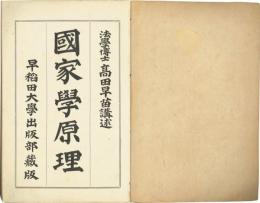 法學博士 高田早苗講述
國家學原理
早稻田大學出版部藏版